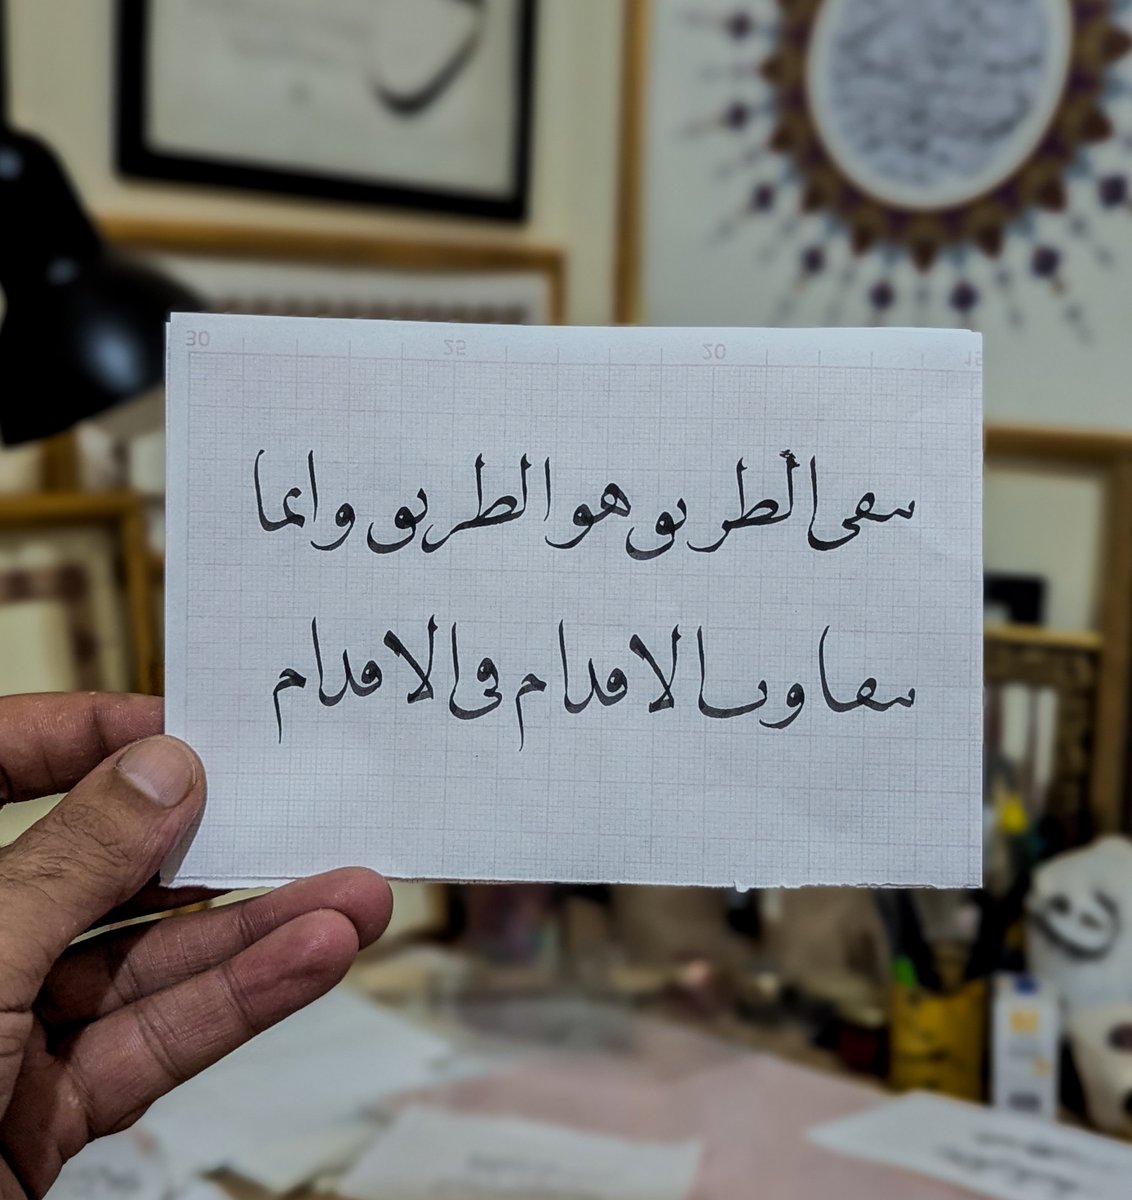 30 25 20 15
يبقى الطريق هو الطريق وانما
يتفاوت الاقدام فى الاقدام